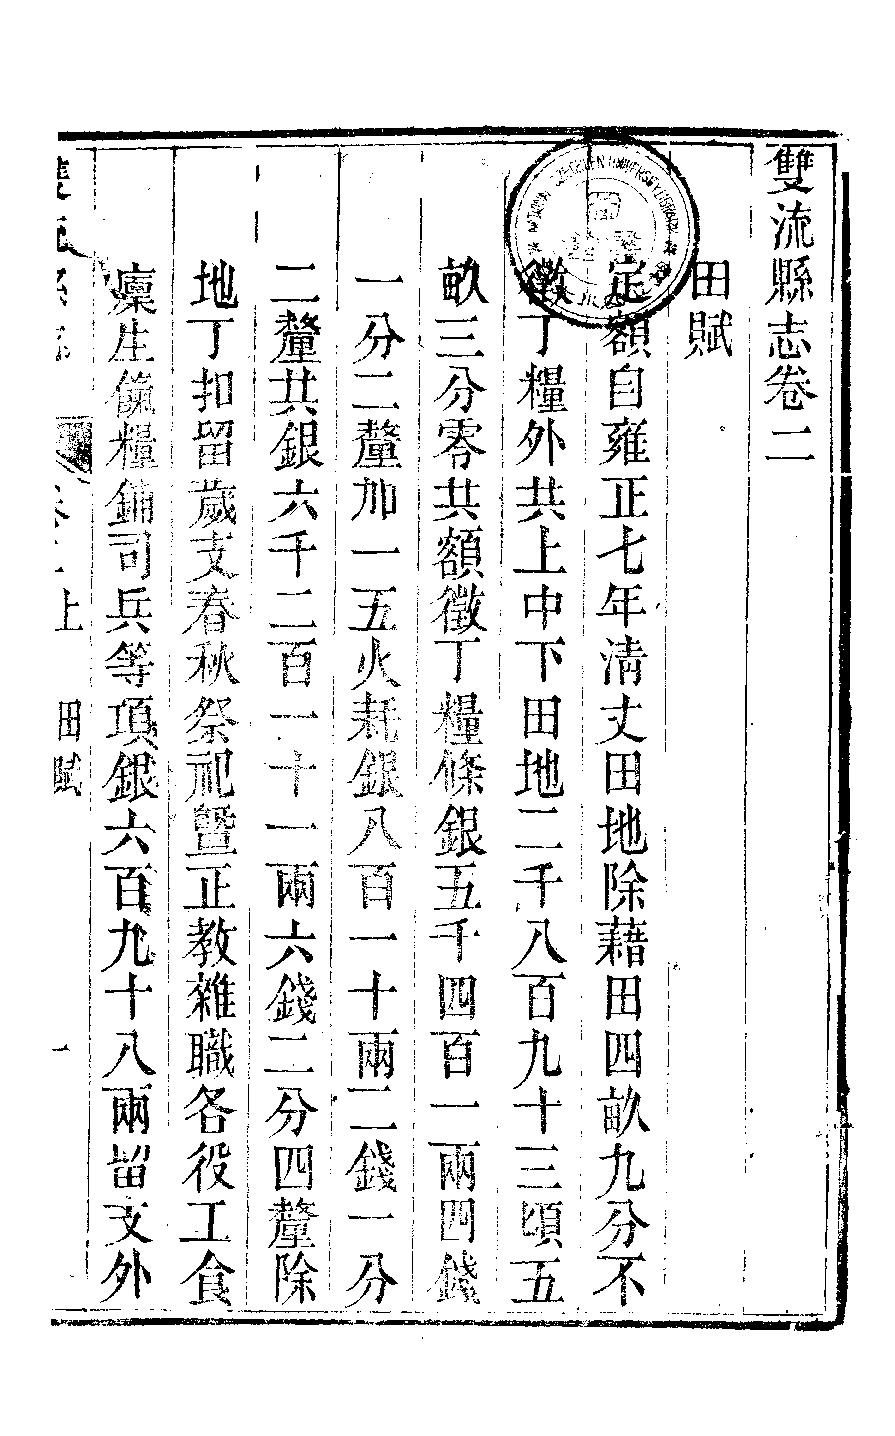 雙流縣志卷二
田賦
定額自雍正七年淸丈田地除藉田四畝九分不
徵丁糧外共上中下田地二千八百九十三頃五
畝三分零共額徵丁糧條銀五千四百一兩四錢
一分二釐加一五火耗銀八百一十兩二錢一分
二釐共銀六千二百一十一兩六錢二分四釐除
地丁扣留歲支春秋祭祀曁正教雜職各役工食
廩生餼糧鋪司兵等項銀六百九十八兩留支外
上 田賦 一